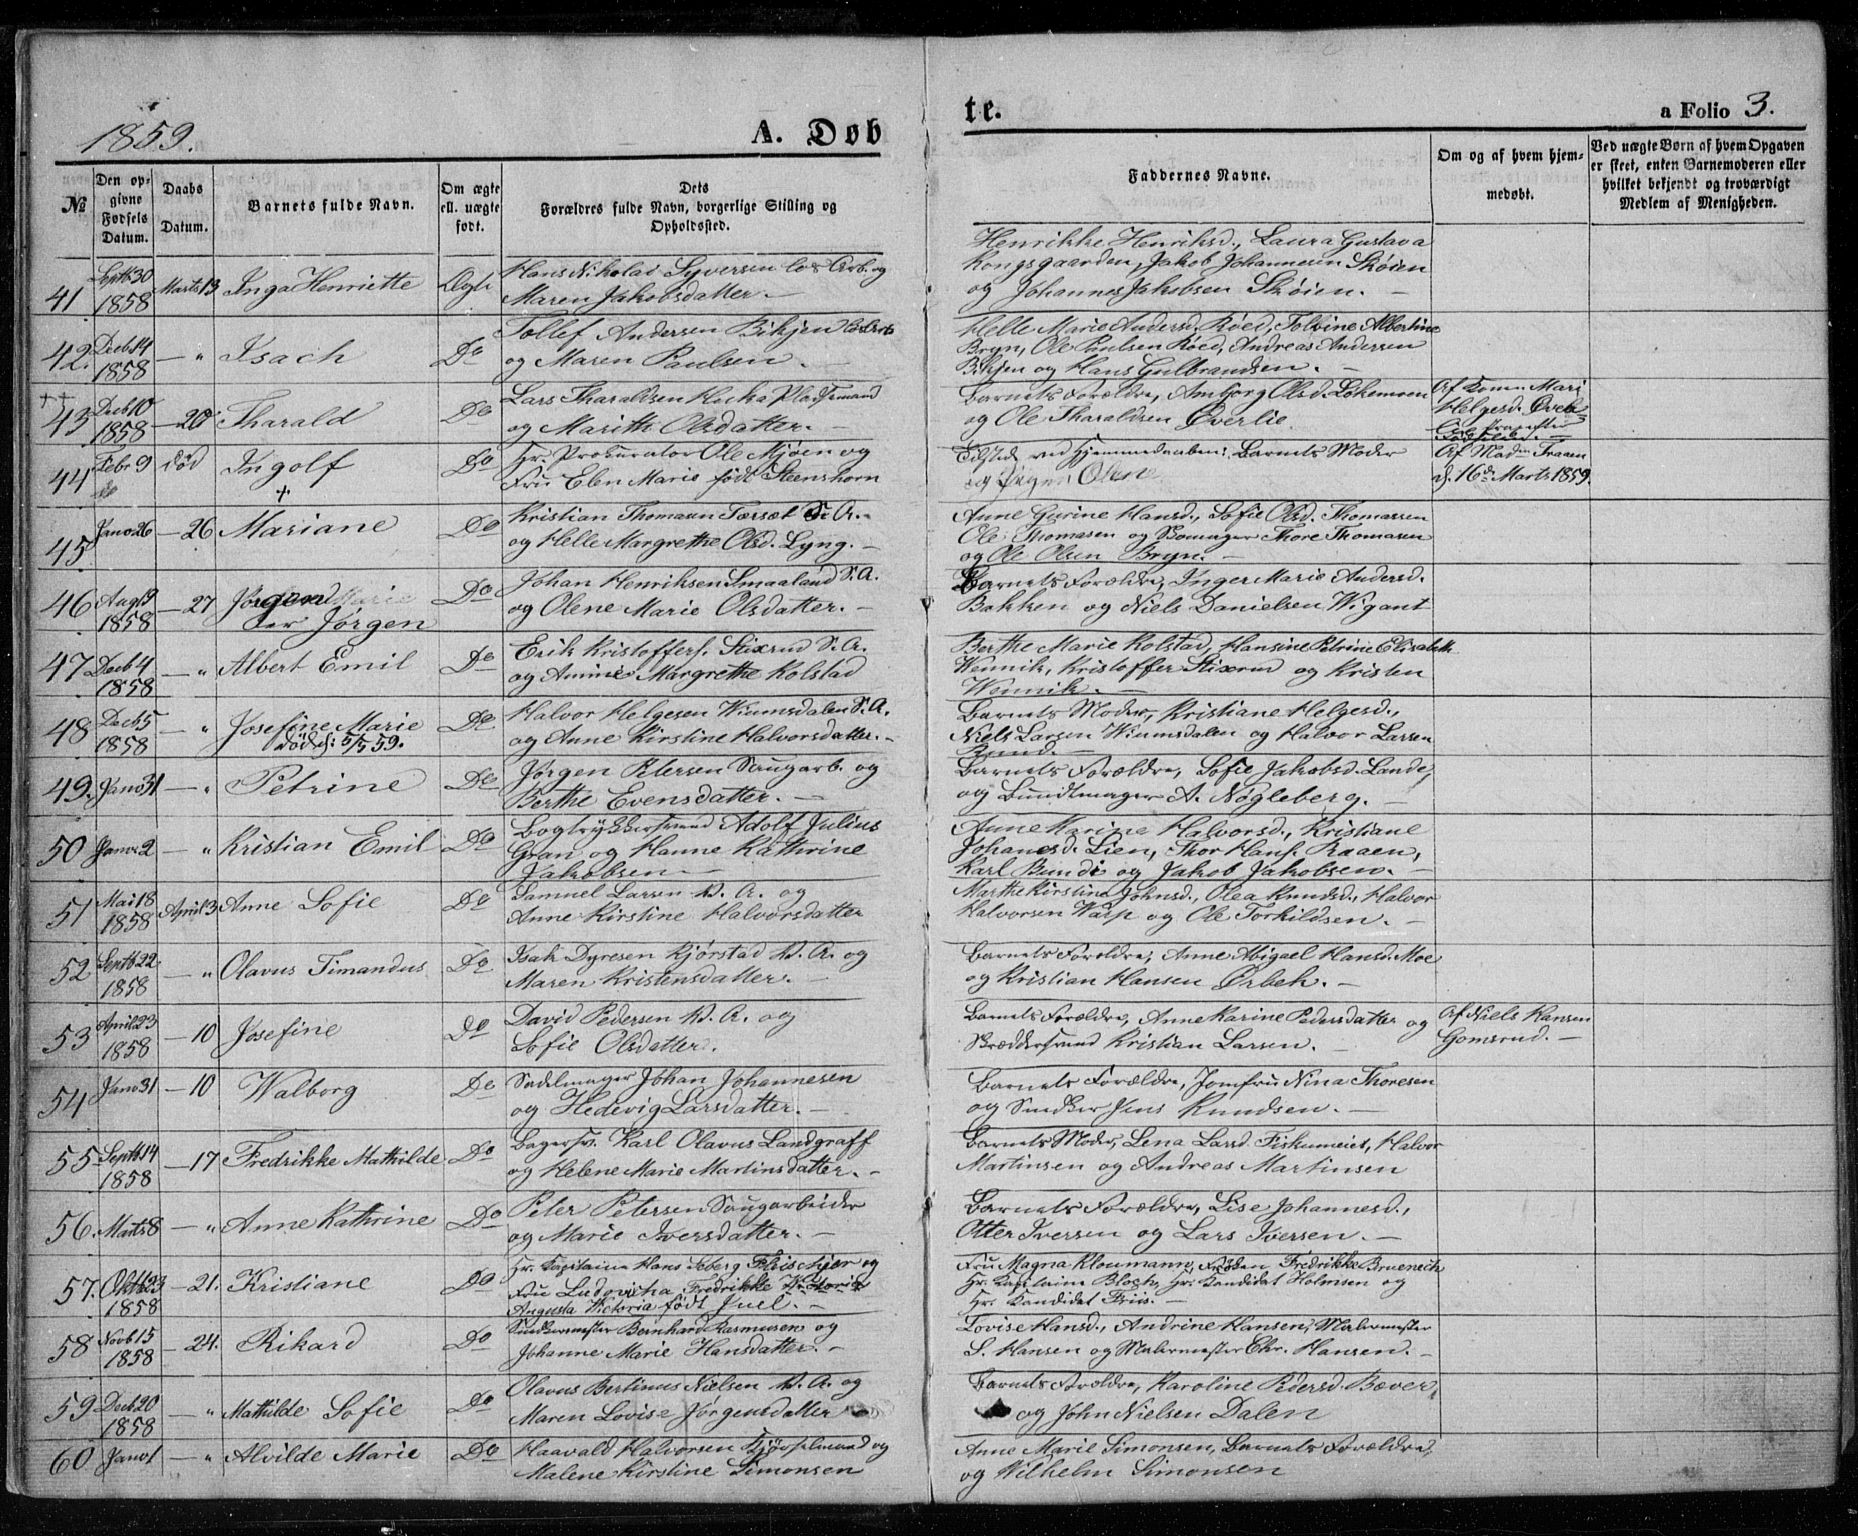 1859.
A. Døb
te.
a Folio 3.
№
Den op-
givne
Fødsels
Datum.
Daabs
Datum.
Barnets fulde Navn.
Om ægte
ell. uægte
født.
Dets
Forældres fulde Navn, borgerlige Stilling og
Opholdssted.
Faddernes Navne.
Om og af hvem hjem-
medøbt.
Ved uægte Børn af hvem Opgaven
er skeet, enten Barnemoderen eller
hvilket bekjendt og troværdigt
Medlem af Menigheden.
41 Septb 30 1858 Marts 13 Inga Henriette Ægte
Hans Nikolai Syversen og
Maren Jakobsdatter. —
Henrikke Henriksd., Laura Gustava
Kongsgaarden, Jakob Johannesen Skøien
og Johannes Jakobsen Skøien. —
42. Decb 14 1858 — " Isach Do
Tollef Andersen Bikjen
og Maren Paulsen. —
Helle Marie Andersd. Røed, Tolvine Albertine
Bryn, Ole Paulsen Røed, Andreas Andersen
Bikjen og Hans Gulbrandsen. —
43 Decb 10 1858 — 20 Tharald Do
Lars Tharaldsen Pladsmand
og Marith Olsdatter. —
Barnets Forældre, Amborg Olsd. Løkemoen
og Ole Tharaldsen Øverlie.
Af Konen Mari
Helgesd.
44 Febr 9 død Ingolf + Do
Hr. Prokurator Ole Mjøen og
Fru Elen Marie født Steenshorn
Tilsted ved Hjemmedaaben: Barnets Moder
og Pigen Olene
Af Madm Traaen
d. 16de Marts 1859.
45 Jan 26 — 26 Mariane Do
Kristian Thomasen S. A.
og Helle Margrethe Olsd. Lyng. —
Anne Gurine Hansd., Sofie Olsd. Thomassen
Ole Thomasen og Thore Thomasen
og Ole Olsen Bryn. —
46 Aug 9 1858 — 27 Jørgen Do
Johan Henriksen Smaaland S. A.
og Olene Marie Olsdatter. —
Barnets Forældre, Inger Marie Andersd.
Bakken og Niels Danielsen Wigant
47 Decb 4 1858 — " Albert Emil Do
Erik Kristoffers. Stixrud S. A.
og Margrethe Kolstad
Berthe Marie Kolstad, Hansine Petrine Elisabeth
Wennik, Kristoffer Stixrud og Kristen
Wennik. —
48 Decb 5 1858 — " Josefine Marie Do
død d. 5/5 59.
Halvor Helgesen Wiumsdalen S. A.
og Anne Kirstine Halvorsdatter. —
Barnets Moder, Kristiane Helgesd.,
Niels Larsen Wiumsdalen og Halvor Larsen
Ruud. —
49. Jan 31 — " Petrine Do
Jørgen Petersen Saugarb. og
Berthe Evensdatter. —
Barnets Forældre, Sofie Jakobsd. Lande,
og Bundtmager A. Nøgleberg. —
50 Janr 2 — " Kristian Emil Do
Bogtrykkersvend Adolf Julius
Gran og Hanne Kathrine
Jakobsen —
Anne Karine Halvorsd., Kristiane
Johanesd. Lien, Thor Hans. Raaen,
Karl Bunde og Jakob Jakobsen. —
51 Mai 18 1858 April 3 Anne Sofie Do
Samuel Larsen V. A. og
Anne Kirstine Halvorsdatter
Marthe Kirstine Johnsd., Olea Knudsd., Halvor
Halvorsen Warp og Ole Torkildsen. —
52 Septb 22 1858 — " Olavus Timandus Do
Isak Dyresen Kjørstad V. A. og
Maren Kristensdatter. —
Barnets Forældre, Anne Abigael Hansd. Moe
og Kristian Hansen Ørbek. —
53 April 23 1858 — 10 Josefine Do
David Pedersen V. A. og
Sofie Olsdatter.
Barnets Forældre, Anne Karine Pedersdatter og
Kristian Larsen. —
Af Niels Hansen
Gomsrud. —
54 Jan 31 — 10 Walborg Do
Sadelmager Johan Johannesen
og Hedevig Larsdatter. —
Barnets Forældre, Jomfru Nina Thoresen
og Snedker Jens Knudsen. —
55 Septb 14 1858 — 17 Fredrikke Mathilde Do
Bagersv. Karl Olavus Landgraff
og Helene Marie Martinsdatter. —
Barnets Moder, Lena Larsd. Fiskumeiet, Halvor
Martinsen og Andreas Martinsen
56. Marts 8 — " Anne Kathrine Do
Peter Petersen Saugarbeider
og Marie Iversdatter. —
Barnets Forældre, Lise Johannesd.,
Otter Iversen og Lars Iversen. —
57. Oktb 23 1858 — 21. Kristiane Do
Hr. Kapitaine Hans Seberg Fleischer og
Fru Ludovicha Fredrikke
Augusta Victoria født Juel. —
Fru Magna Kloumann, Frøken Fredrikke Bruenech
Hr. Kapitaine Bloch, Hr. Kandidat Holmsen og
Hr. Kandidat Friis. —
58 Novb 15 1858 — 24. Rikard Do
Snedkermester Bernhard Rasmusen og
Johanne Marie Hansdatter. —
Lovise Hansd., Andrine Hansen, Malermester
S. Hansen og Malermester Chr. Hansen. —
59 Decb 20 1858 — " Mathilde Sofie Do
Olavus Bertinus Nielsen V. A. og
Maren Lovise Jørgensdatter
Barnets Forældre, Karoline Pedersd. Bæver,
og John Nielsen Dalen
60 Jan 1 — " Alvilde Marie Do
Haavald Halvorsen Kjørselmand og
Malene Kirstine Simonsen
Anne Marie Simonsen, Barnets Forældre,
og Wilhelm Simonsen